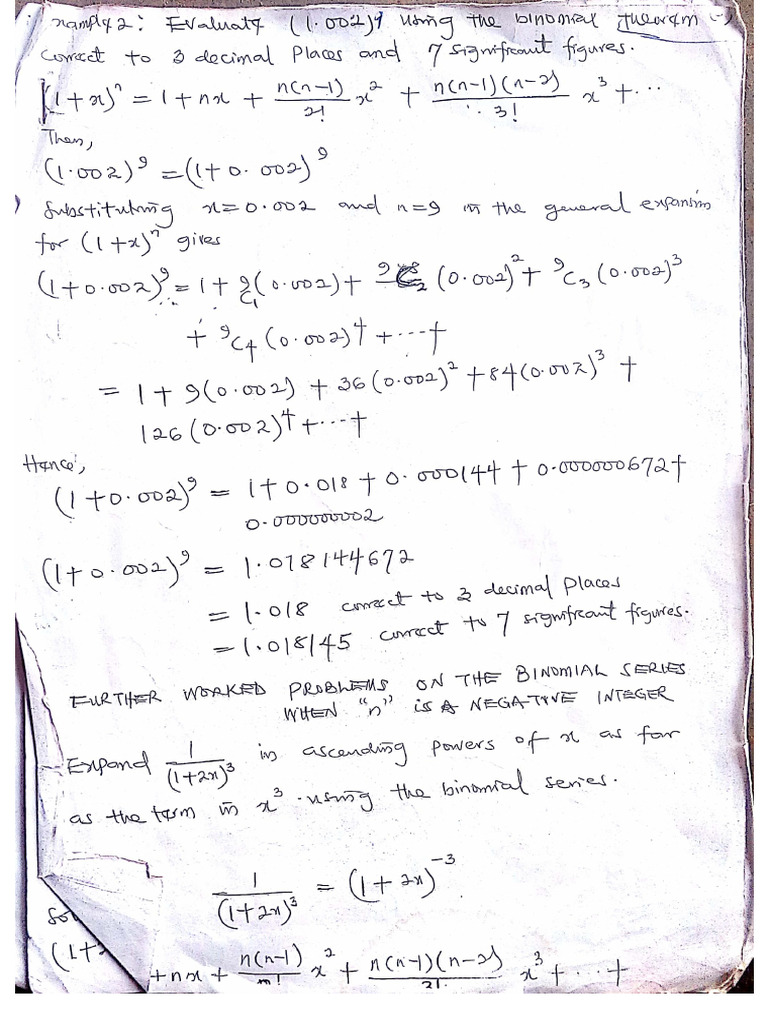 xample 2: Evaluate (1.002)⁹ using the binomial theorem
correct to 3 decimal Places and 7 significant figures.
(1+x)ⁿ = 1 + nx + n(n-1)/2! x² + n(n-1)(n-2)/3! x³ + ...
Then,
(1.002)⁹ = (1+0.002)⁹
Substituting x=0.002 and n=9 in the general expansion
for (1+x)ⁿ gives
(1+0.002)⁹ = 1 + ⁹C₁(0.002) + ⁹C₂(0.002)² + ⁹C₃(0.002)³
+ ⁹C₄(0.002)⁴ + ... +
= 1 + 9(0.002) + 36(0.002)² + 84(0.002)³ +
126(0.002)⁴ + ... +
Hence,
(1+0.002)⁹ = 1+0.018 + 0.000144 + 0.000000672 +
0.000000002
(1+0.002)⁹ = 1.018144672
= 1.018 correct to 3 decimal places
= 1.018145 correct to 7 significant figures.
FURTHER WORKED PROBLEMS ON THE BINOMIAL SERIES
WHEN "n" IS A NEGATIVE INTEGER
Expand 1/(1+2x)³ in ascending powers of x as far
as the term in x³ using the binomial series.
1/(1+2x)³ = (1+2x)⁻³
So
(1+
+nx + n(n-1)/2! x² + n(n-1)(n-2)/3! x³ + ... +